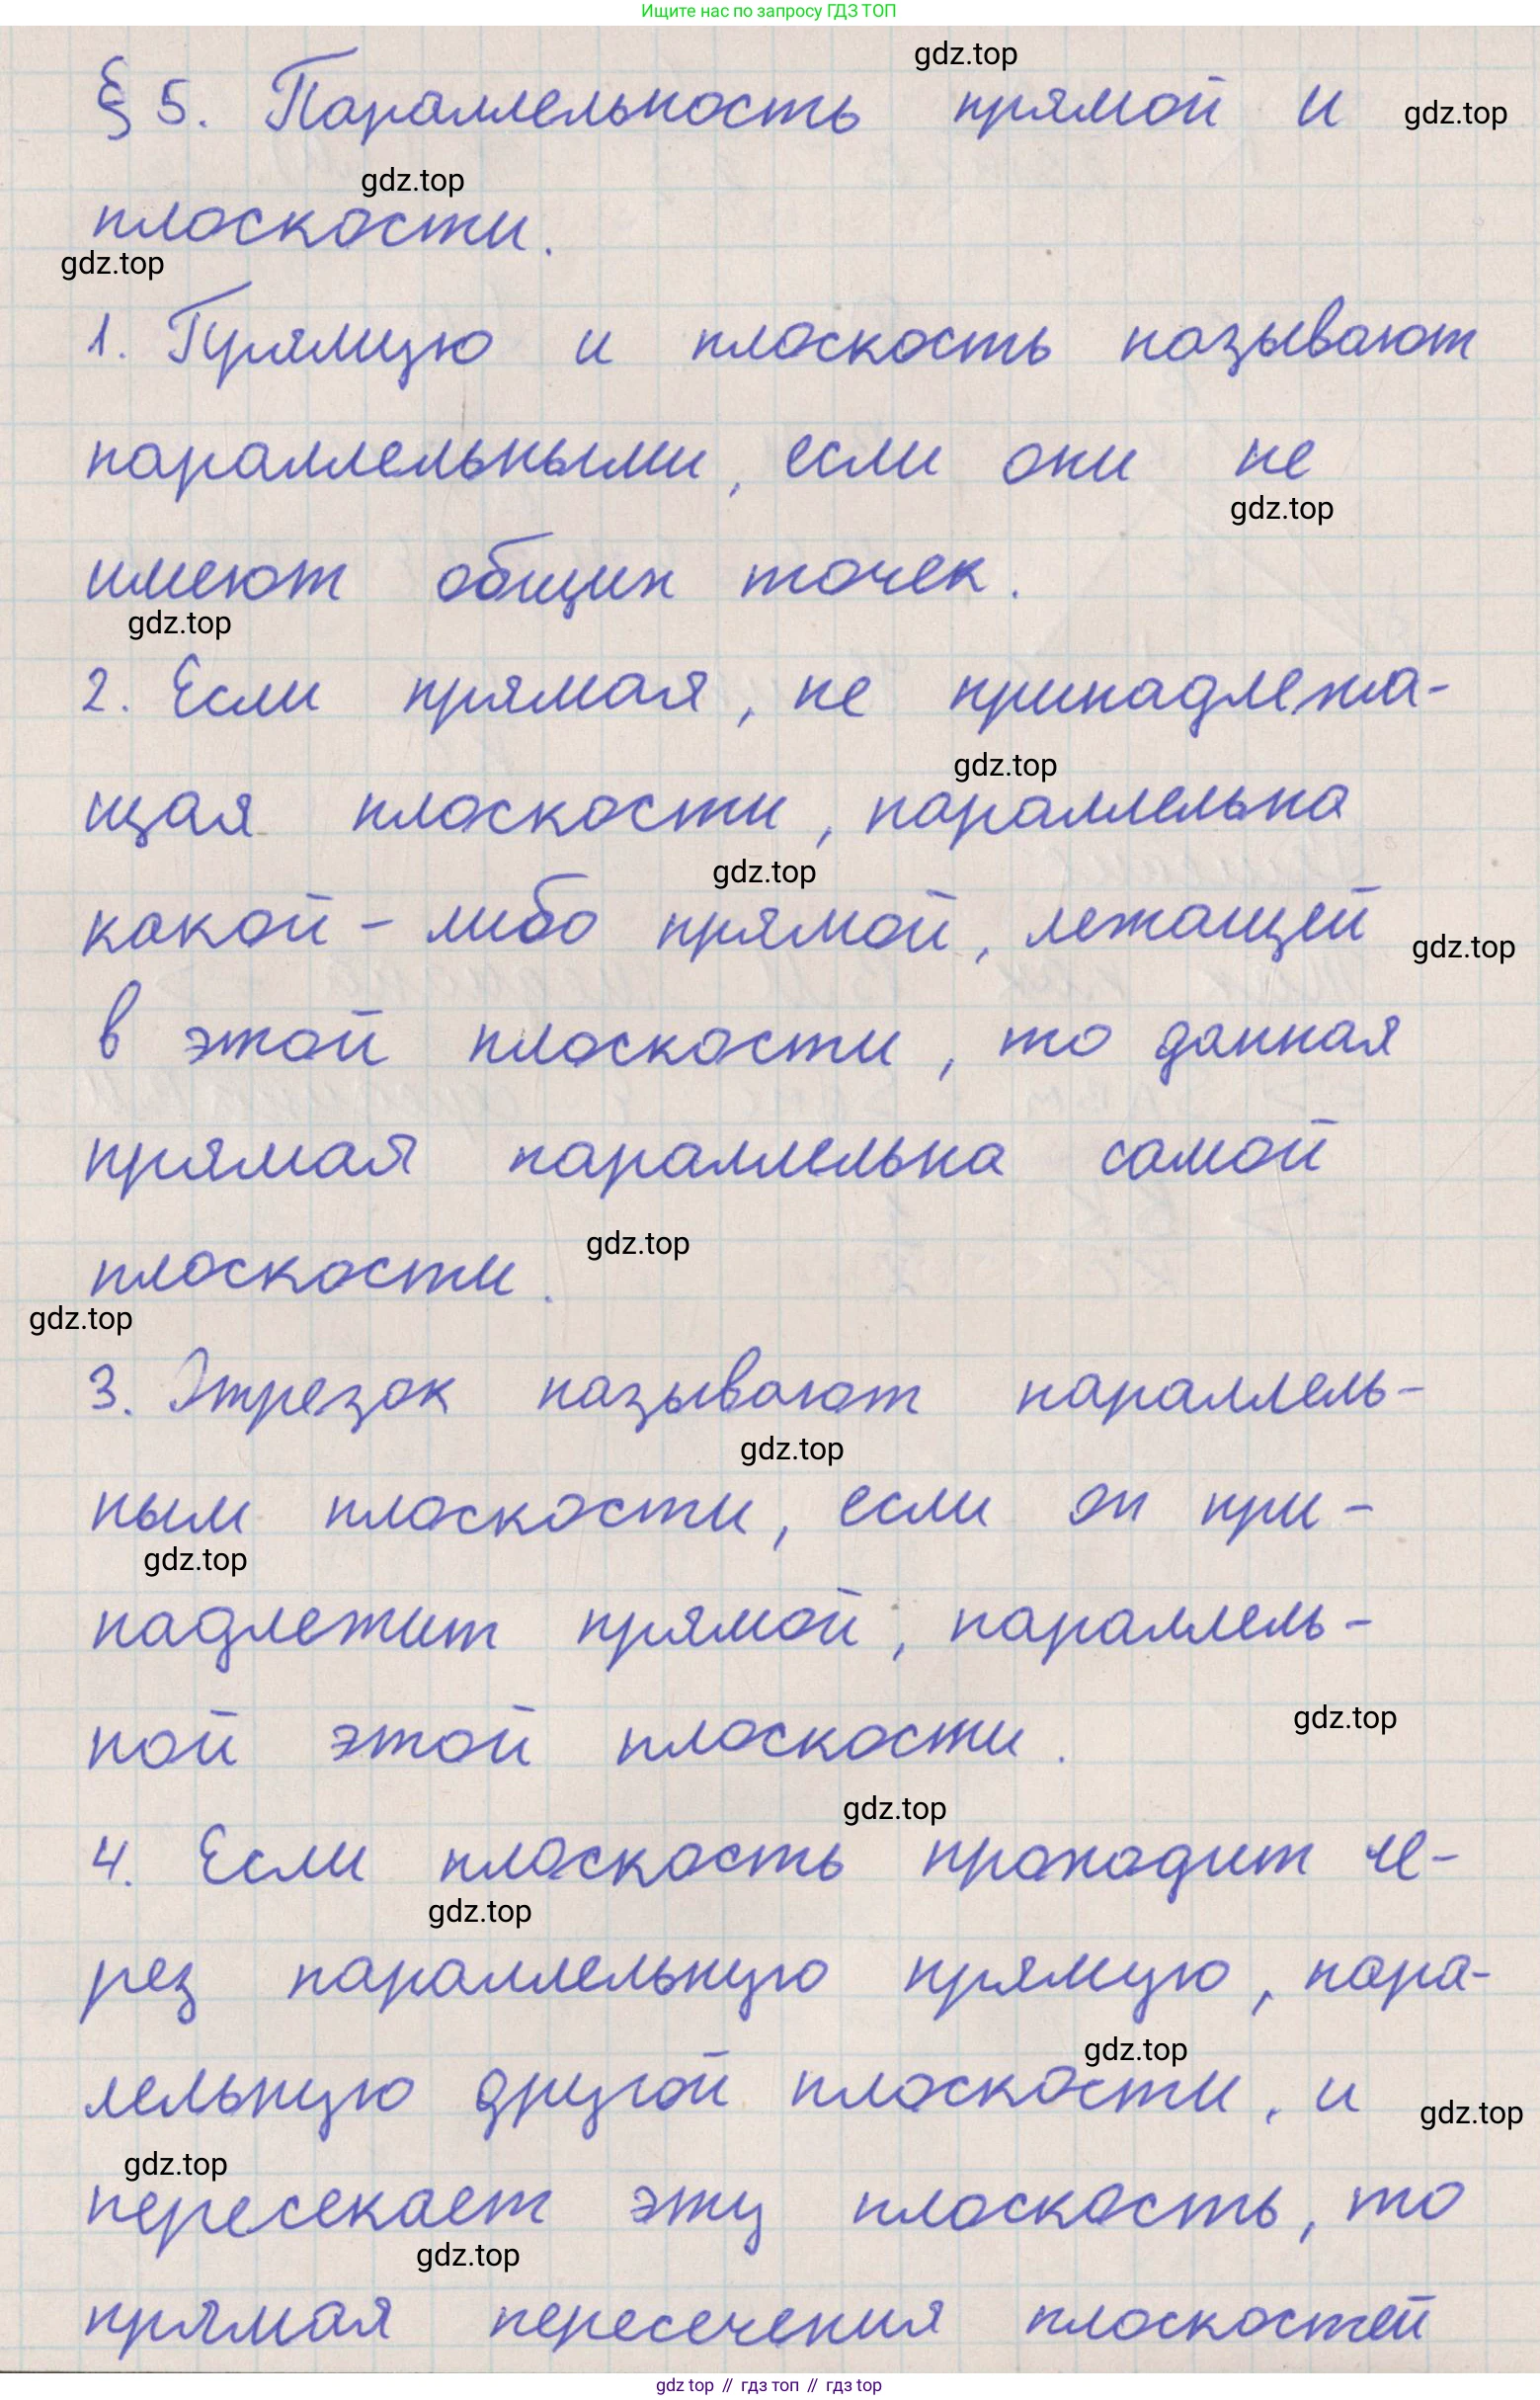 Ищите нас по запросу ГДЗ ТОП
gdz.top
§ 5. Параллельность прямой и
gdz.top
gdz.top
плоскости.
gdz.top
1. Прямую и плоскость называют
параллельными, если они не
gdz.top
имеют общих точек.
gdz.top
2. Если прямая, не принадлежа-
gdz.top
щая плоскости, параллельна
gdz.top
какой-либо прямой, лежащей
gdz.top
в этой плоскости, то данная
прямая параллельна самой
gdz.top
плоскости.
gdz.top
3. Отрезок называют параллель-
gdz.top
ным плоскости, если он при-
gdz.top
надлежит прямой, параллель-
ной этой плоскости.
gdz.top
gdz.top
4. Если плоскость проходит че-
gdz.top
рез параллельную прямую, пара-
gdz.top
лельную другой плоскости, и
gdz.top
gdz.top
пересекает эту плоскость, то
gdz.top
прямая пересечения плоскостей
gdz top // гдз топ // гдз top